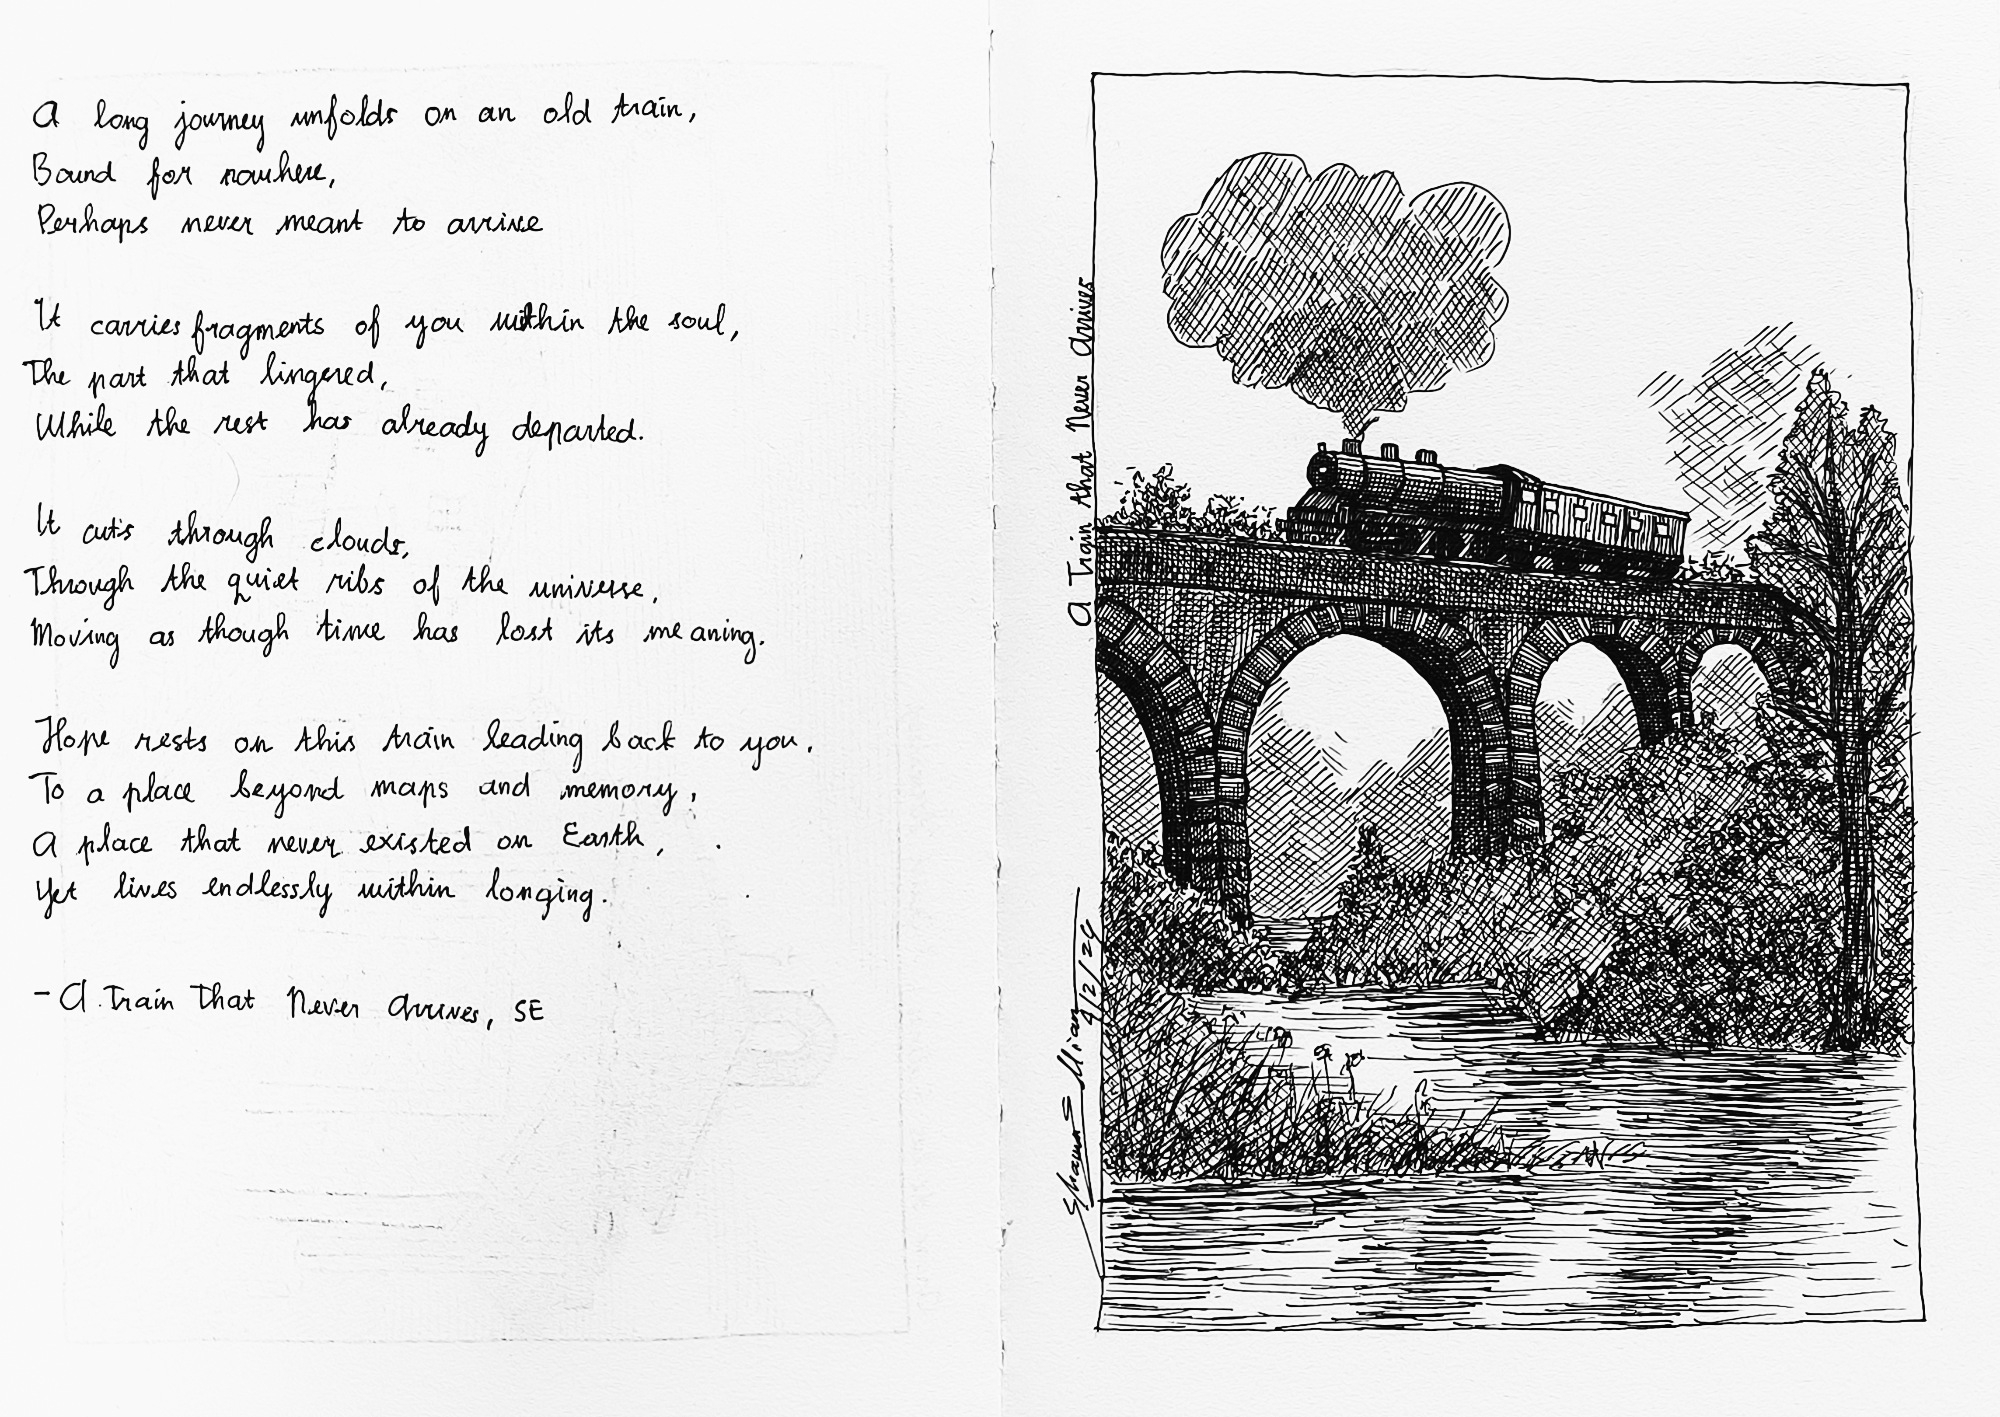 A long journey unfolds on an old train,
Bound for nowhere,
Perhaps never meant to arrive
It carries fragments of you within the soul,
The part that lingered,
While the rest has already departed.
It cuts through clouds,
Through the quiet ribs of the universe,
Moving as though time has lost its meaning.
Hope rests on this train leading back to you,
To a place beyond maps and memory,
A place that never existed on Earth,
Yet lives endlessly within longing.
- A Train That Never Arrives, SE
A Train that Never Arrives
4/2/26